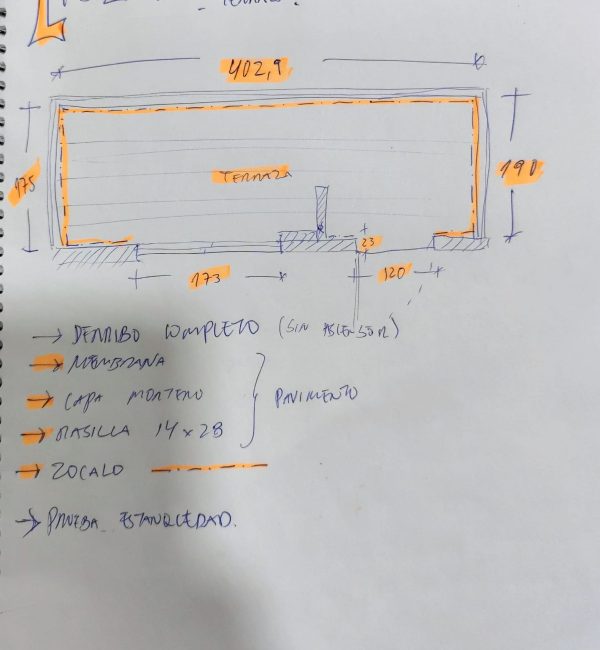 402,9
175
TERRAZA
190
23
173
120
→ DERRIBO COMPLETO (SIN ASCENSOR)
→ MEMBRANA
→ CAPA MORTERO
PAVIMENTO
→ RASILLA 14 x 28
→ ZOCALO
→ PRUEBA ESTANQUEDAD.